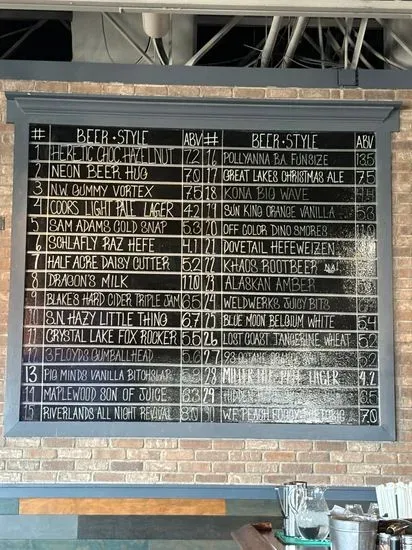 # BEER • STYLE ABV
1 HERETIC CHOC HAZELNUT 7.2
2 NEON BEER HUG 7.0
3 N.W. GUMMY VORTEX 7.5
4 COORS LIGHT PALE LAGER 4.2
5 SAM ADAMS COLD SNAP 5.3
6 SCHLAFLY RAZ HEFE 4.1
7 HALF ACRE DAISY CUTTER 5.2
8 DRAGON'S MILK 11.0
9 BLAKES HARD CIDER TRIPLE JAM 6.5
10 S.N. HAZY LITTLE THING 6.7
11 CRYSTAL LAKE FOX ROCKER 5.5
12 3 FLOYDS GUMBALLHEAD
13 PIG MINDS VANILLA
14 MAPLEWOOD SON OF JUICE 6.3
15 RIVERLANDS ALL NIGHT REVIVAL 8.0
# BEER • STYLE ABV
16 POLLYANNA B.A. FUNSIZE 13.5
17 GREAT LAKES CHRISTMAS ALE 7.5
18 KONA BIG WAVE 4.4
SUN KING ORANGE VANILLA 5.3
20 OFF COLOR DINO SMORES
21 DOVETAIL HEFEWEIZEN
22 KHAOS ROOTBEER
23 ALASKAN AMBER
24 WELDWERKS JUICY BITS
25 BLUE MOON BELGIUM WHITE 5.4
26 LOST COAST TANGERINE WHEAT 5.2
27 93 OCTANE
28 MILLER LAGER 4.2
29 HIDDEN
W.F. PEACH 7.0